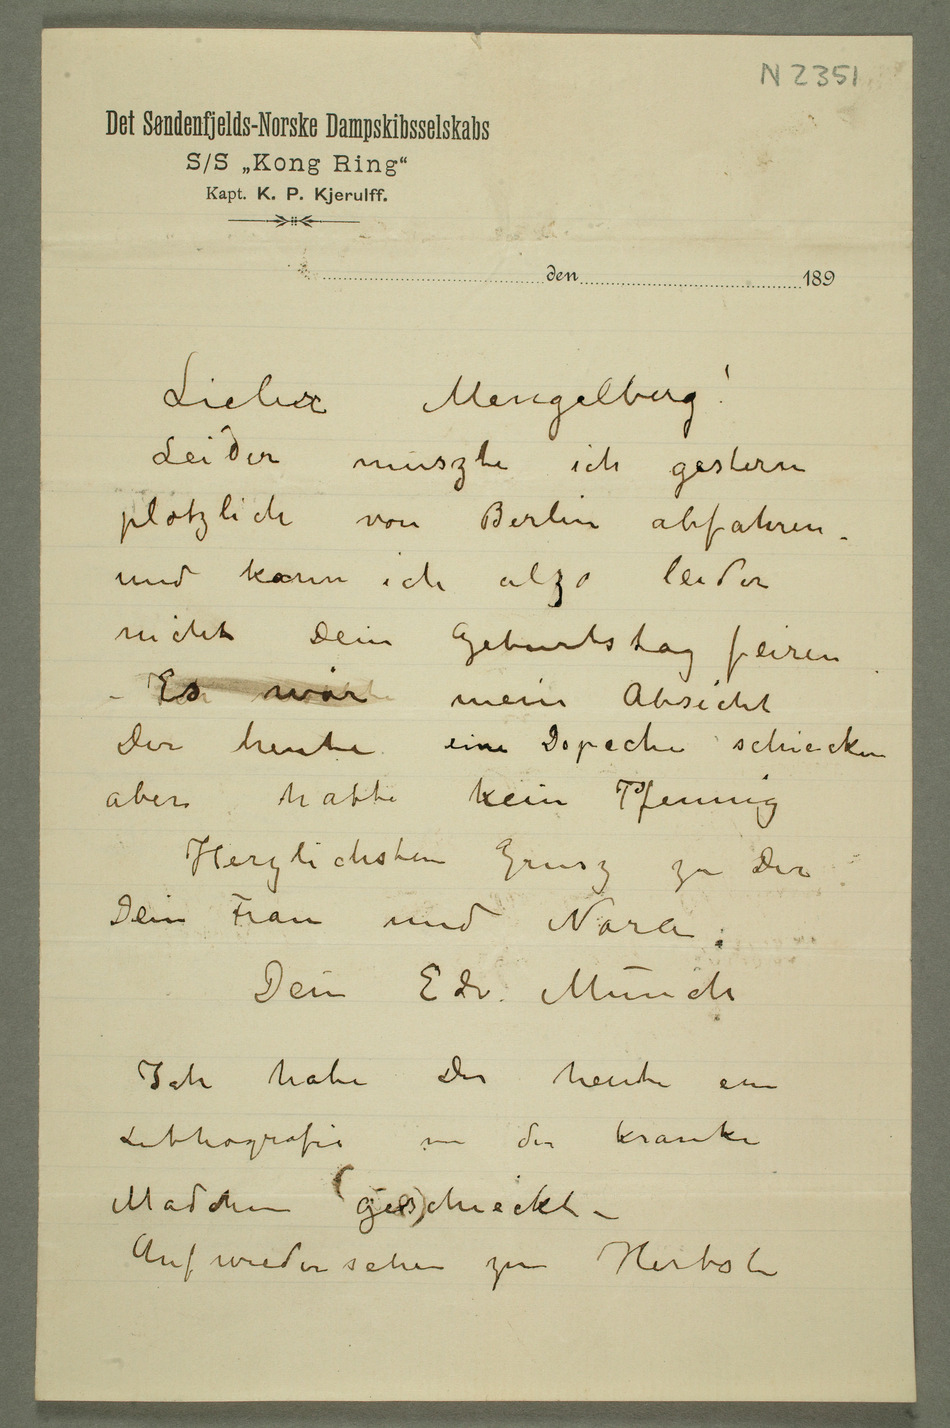 N 2351
Det Søndenfjelds-Norske Dampskibsselskabs
S/S „Kong Ring“
Kapt. K. P. Kjerulff.
den 189
Lieber Mengelberg!
Leider muszte ich gestern
plötzlich von Berlin abfahren –
und kann ich alzo leider
nicht Dein Geburtstag feiren
– Es war mein Absicht
Dir heute eine Depeche schiecken
aber hatte kein Pfennig
Herzlichsten Grusz zu Dir
Dein Frau und Nora.
Dein Edv. Munch
Ich habe Dir heute ein
Lithografie von der kranke
Mädchen geschieckt –
Auf wiedersehen zum Herbste